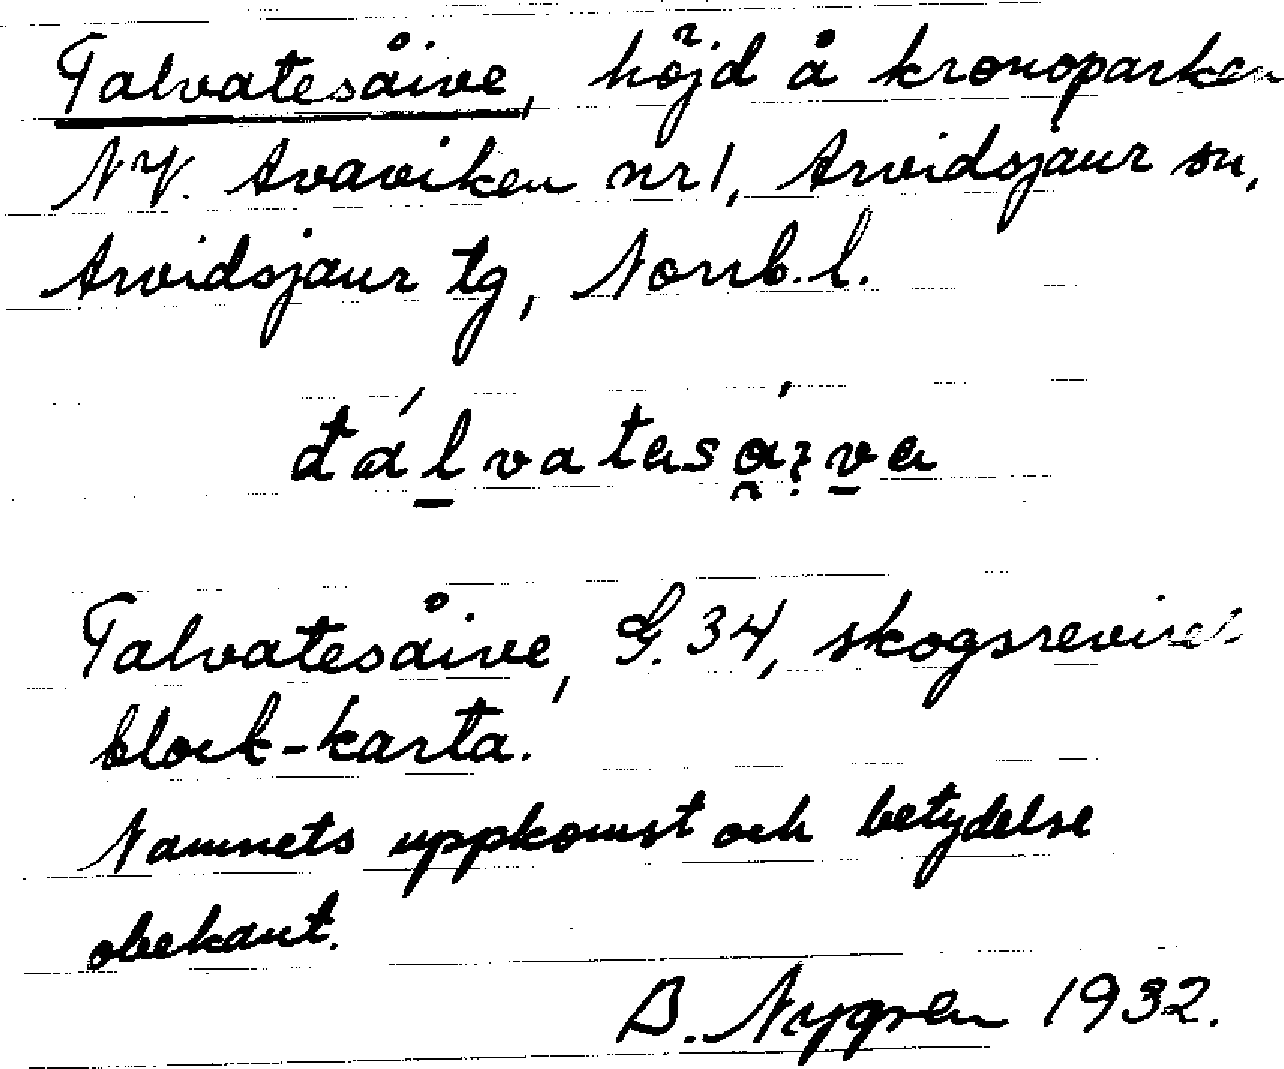 Talvatesåive, höjd å kronoparken
NV. Avaviken nr 1, Arvidsjaur sn,
Arvidsjaur tg, Norrb. l.
Talvatesåive, G. 34, skogsrevirets
block-karta.
Namnets uppkomst och betydelse
obekant.
B. Nygren 1932.